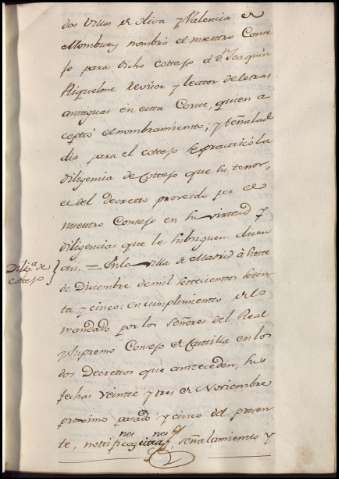 dos Villas de Oliva y Valencia de
Mombuey nombró el nuestro Conse
jo para dicho cotejo a Dn. Joaquin
Riquelme Revisor y lector de letras
antiguas en esta Corte, quien a
ceptó el nombramiento, y señalado
dia para el cotejo se practicó la
diligencia de Cotejo que su tenor,
el del Decreto proveido por el
nuestro Consejo en su virtud y
diligencias que le subsiguen dicen
Dilig.ª de cotejo
asi. = En la Villa de Madrid à siete
de Diciembre de mil setecientos seten
ta y cinco: en cumplimiento de lo
mandado por los Señores del Real
y Supremo Consejo de Castilla en los
dos Decretos que anteceden, sus
fechas veinte y tres de Noviembre
proximo pasado y cinco del presen
te, notificaciones señalamiento y